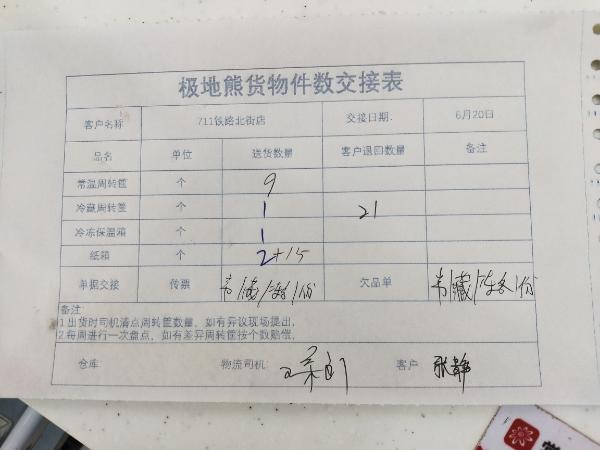 极地熊货物件数交接表
客户名称 711铁路北街店 交接日期: 6月20日
品名 单位 送货数量 客户退回数量 备注
常温周转筐 个 9
冷藏周转筐 个 1 21
冷冻保温箱 个 1
纸箱 个 2+15
单据交接 传票 常/藏/冻各1份 欠品单 常/藏/冻各1份
备注
1.出货时司机清点周转筐数量，如有异议现场提出，
2.每周进行一次盘点，如有差异周转筐按个数赔偿，
仓库: 物流司机: 客户 张静